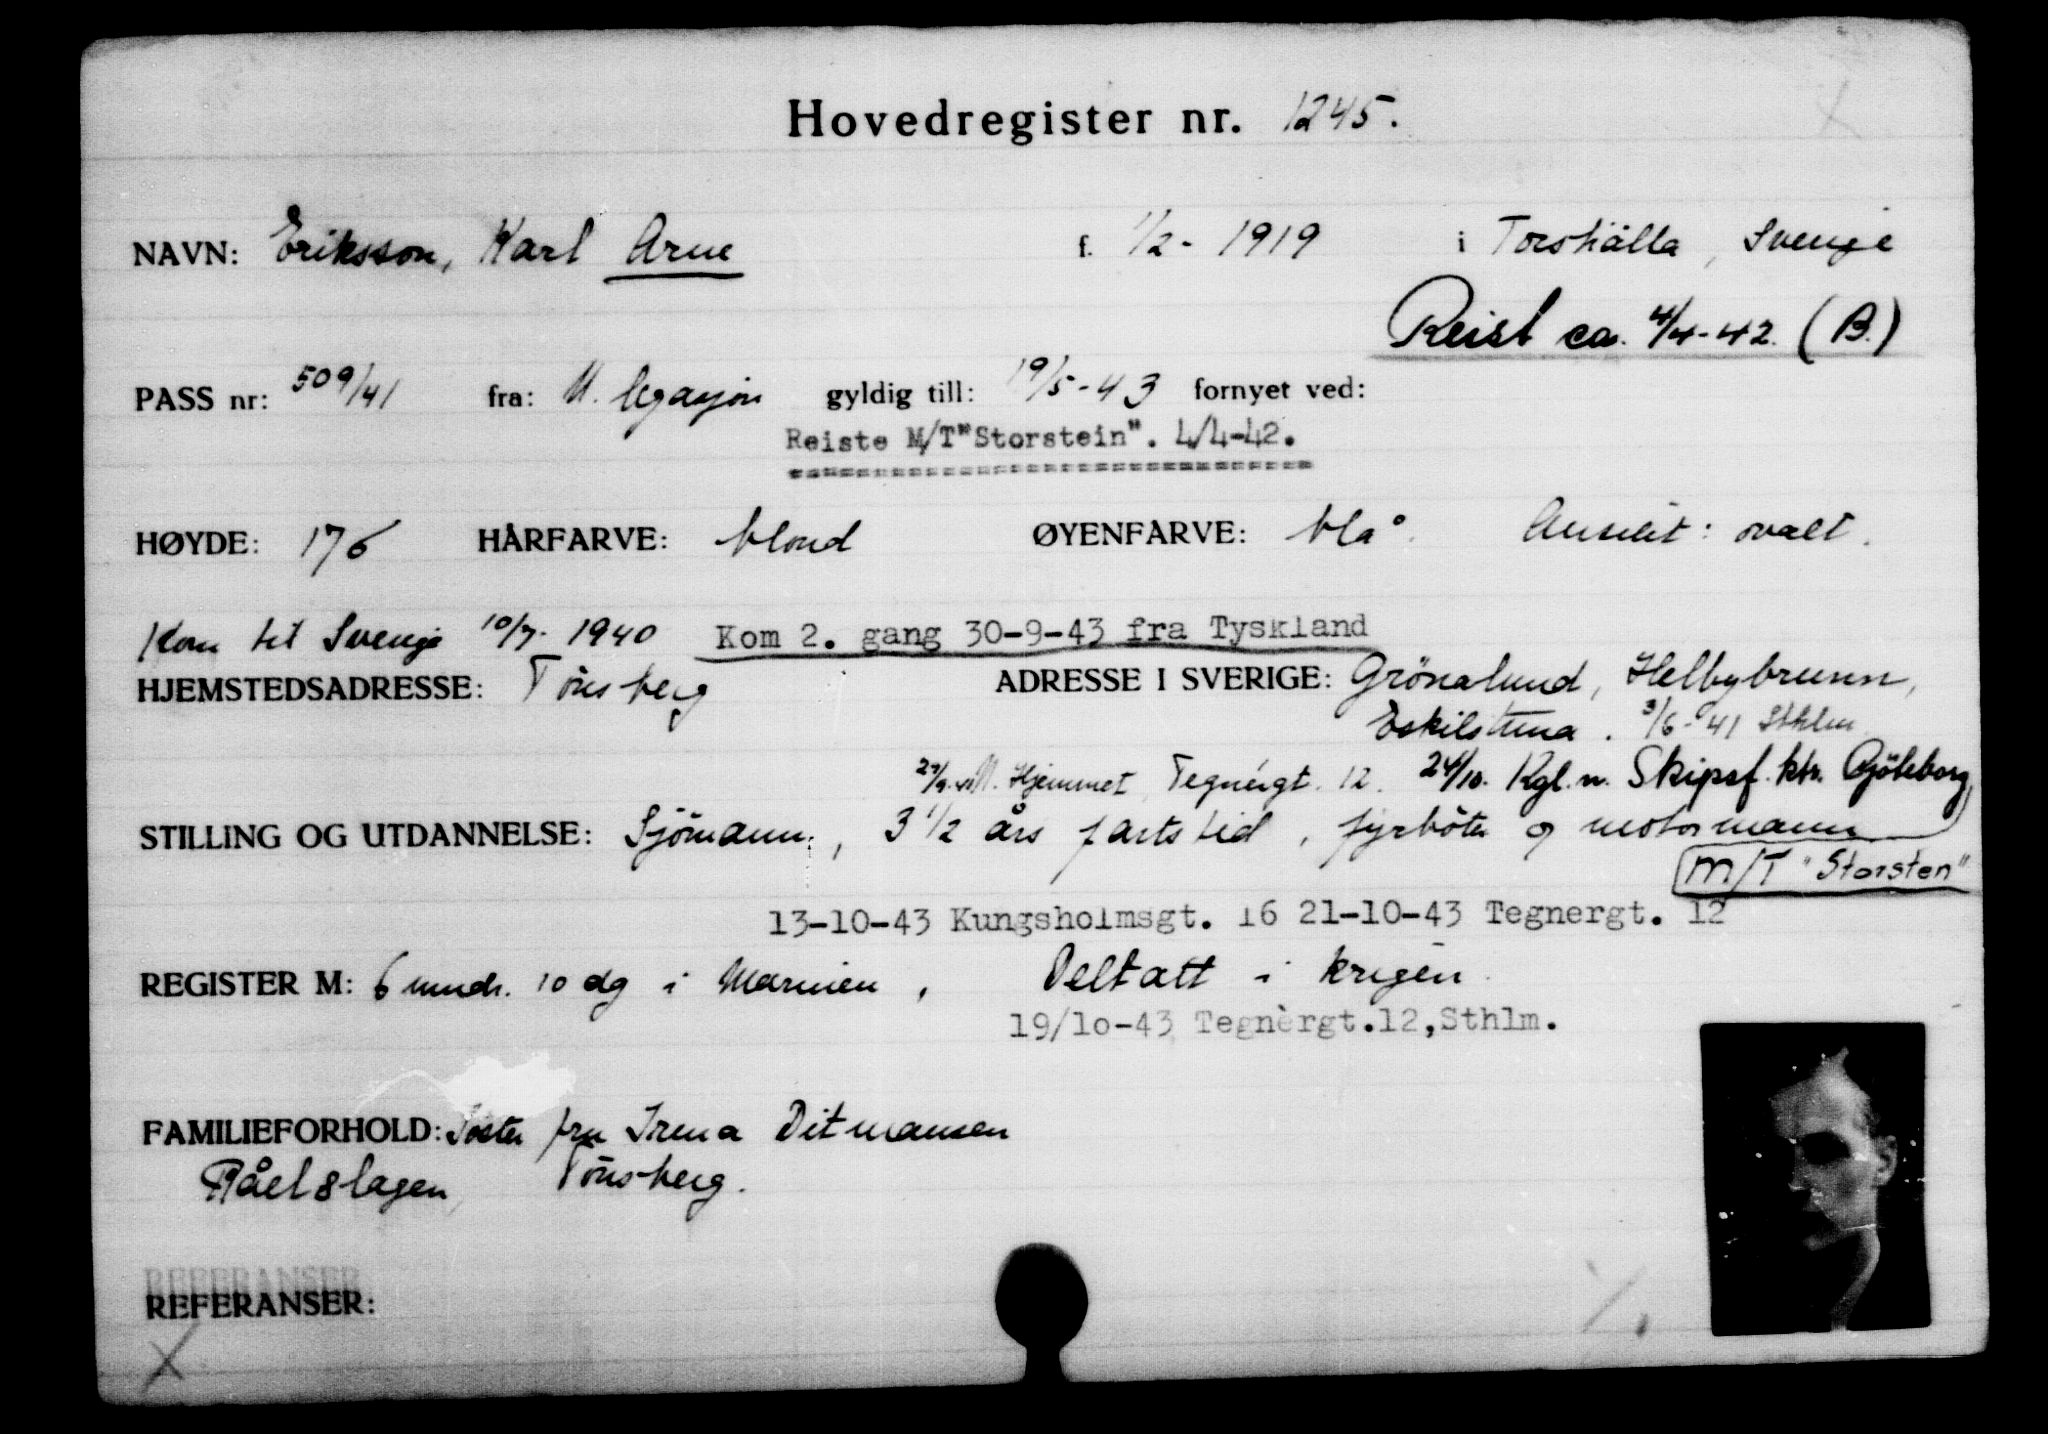 Hovedregister nr. 1245.
NAVN: Eriksson, Karl Arne f. 1/2 - 1919 i Torshälla, Sverige
Reist ca. 4/4-42. (B.)
PASS nr: 509/41 fra: N. legasjon gyldig till: 19/5-43 fornyet ved:
Reiste M/T"Storstein". 4/4-42.
HØYDE: 176 HÅRFARVE: blond ØYENFARVE: blå. Ansikt: ovalt.
Kom til Sverige 10/7- 1940 Kom 2. gang 30-9-43 fra Tyskland
HJEMSTEDSADRESSE: Tönsberg ADRESSE I SVERIGE: Grönalund, Helbybrunn,
Eskilstuna. 3/6-41 Sthlm
Hjemmet, Tegnérgt. 12. 24/10. Kgl. n. Skipsf. ktr. Göteborg
STILLING OG UTDANNELSE: Sjömann, 3 1/2 års fartstid, fyrböter og motormann
M/T "Storsten"
13-10-43 Kungsholmsgt. 16 21-10-43 Tegnergt. 12
REGISTER M: 6 mndr. 10 dg i Marinen, Deltatt i krigen.
19/1o-43 Tegnèrgt.12,Sthlm.
FAMILIEFORHOLD: Söster fru Irena Ditmansen
Råelslagen, Tönsberg.
REFERANSER
REFERANSER:
X